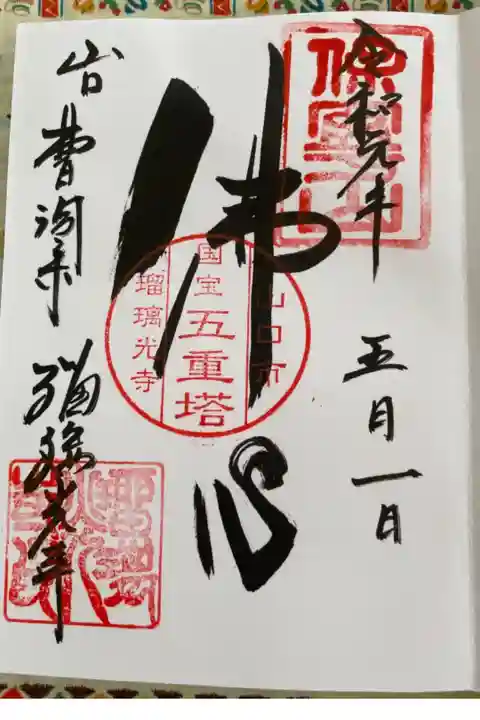 保寧山
令和元年 五月一日
佛心
山口市
国宝 五重塔
瑠璃光寺
山口 曹洞宗 瑠璃光寺